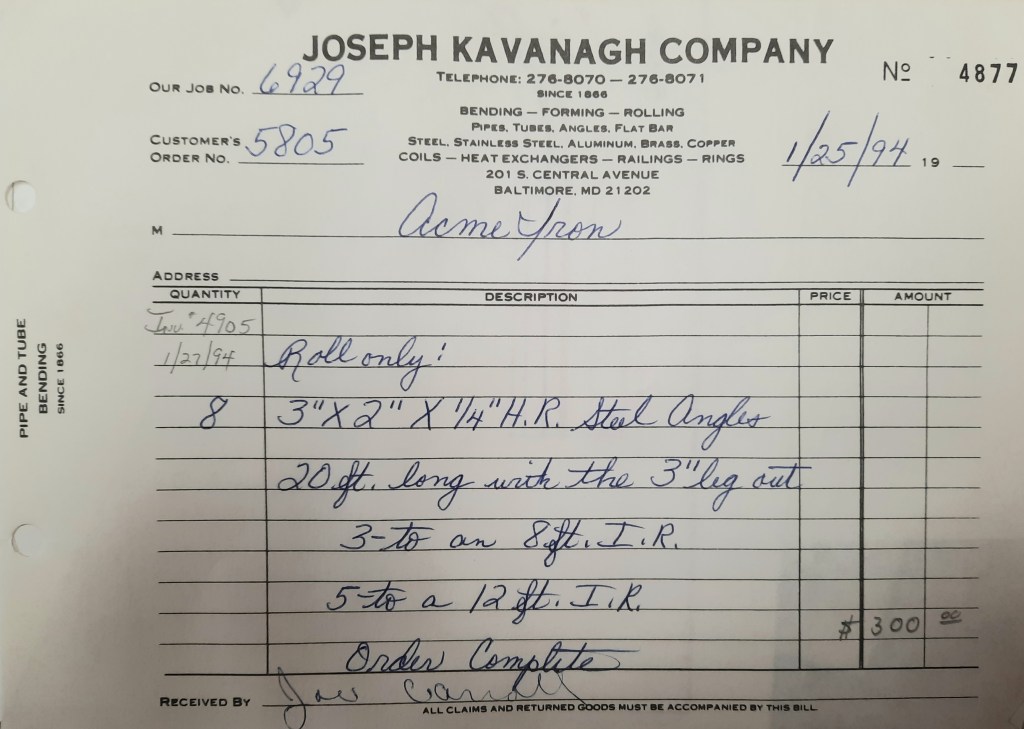 JOSEPH KAVANAGH COMPANY
TELEPHONE: 276-8070 — 276-8071
SINCE 1866
BENDING — FORMING — ROLLING
PIPES, TUBES, ANGLES, FLAT BAR
STEEL, STAINLESS STEEL, ALUMINUM, BRASS, COPPER
COILS — HEAT EXCHANGERS — RAILINGS — RINGS
201 S. CENTRAL AVENUE
BALTIMORE, MD 21202
Nº 4877
OUR JOB NO. 6929
CUSTOMER'S ORDER NO. 5805
1/25/94 19
M Acme Iron
ADDRESS
QUANTITY DESCRIPTION PRICE AMOUNT
Inv # 4905
1/27/94 Roll only:
8 3" X 2" X 1/4" H.R. Steel Angles
20 ft. long with the 3" leg out
3-to an 8 ft. I.R.
5-to a 12 ft. I.R.
$ 300 00
Order Complete
RECEIVED BY Joe
ALL CLAIMS AND RETURNED GOODS MUST BE ACCOMPANIED BY THIS BILL.
PIPE AND TUBE
BENDING
SINCE 1866